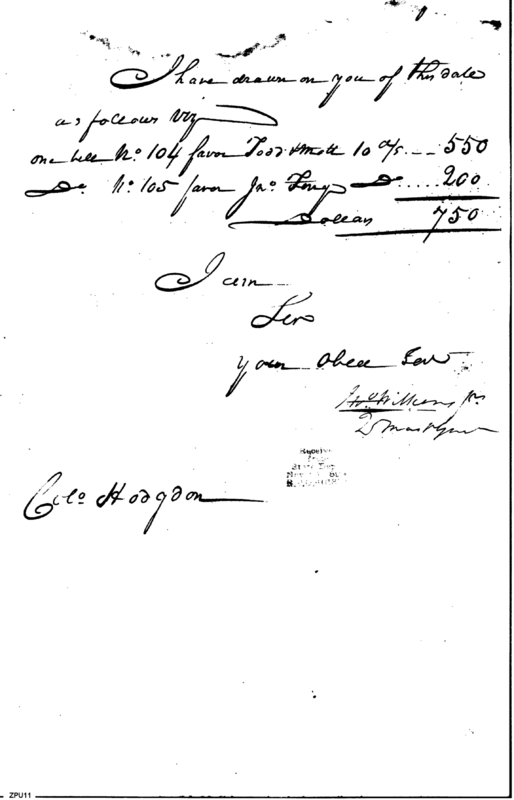 I have drawn on you of this date
as follows viz
one bill No. 104 favor Todd & Mott 10 d/s --- 550
Do No. 105 favor Jno. Do .... 200
Dollars 750
I am
Sir
your Obed Ser
Jno Williams Jnr
Colo Hodgdon
ZPU11